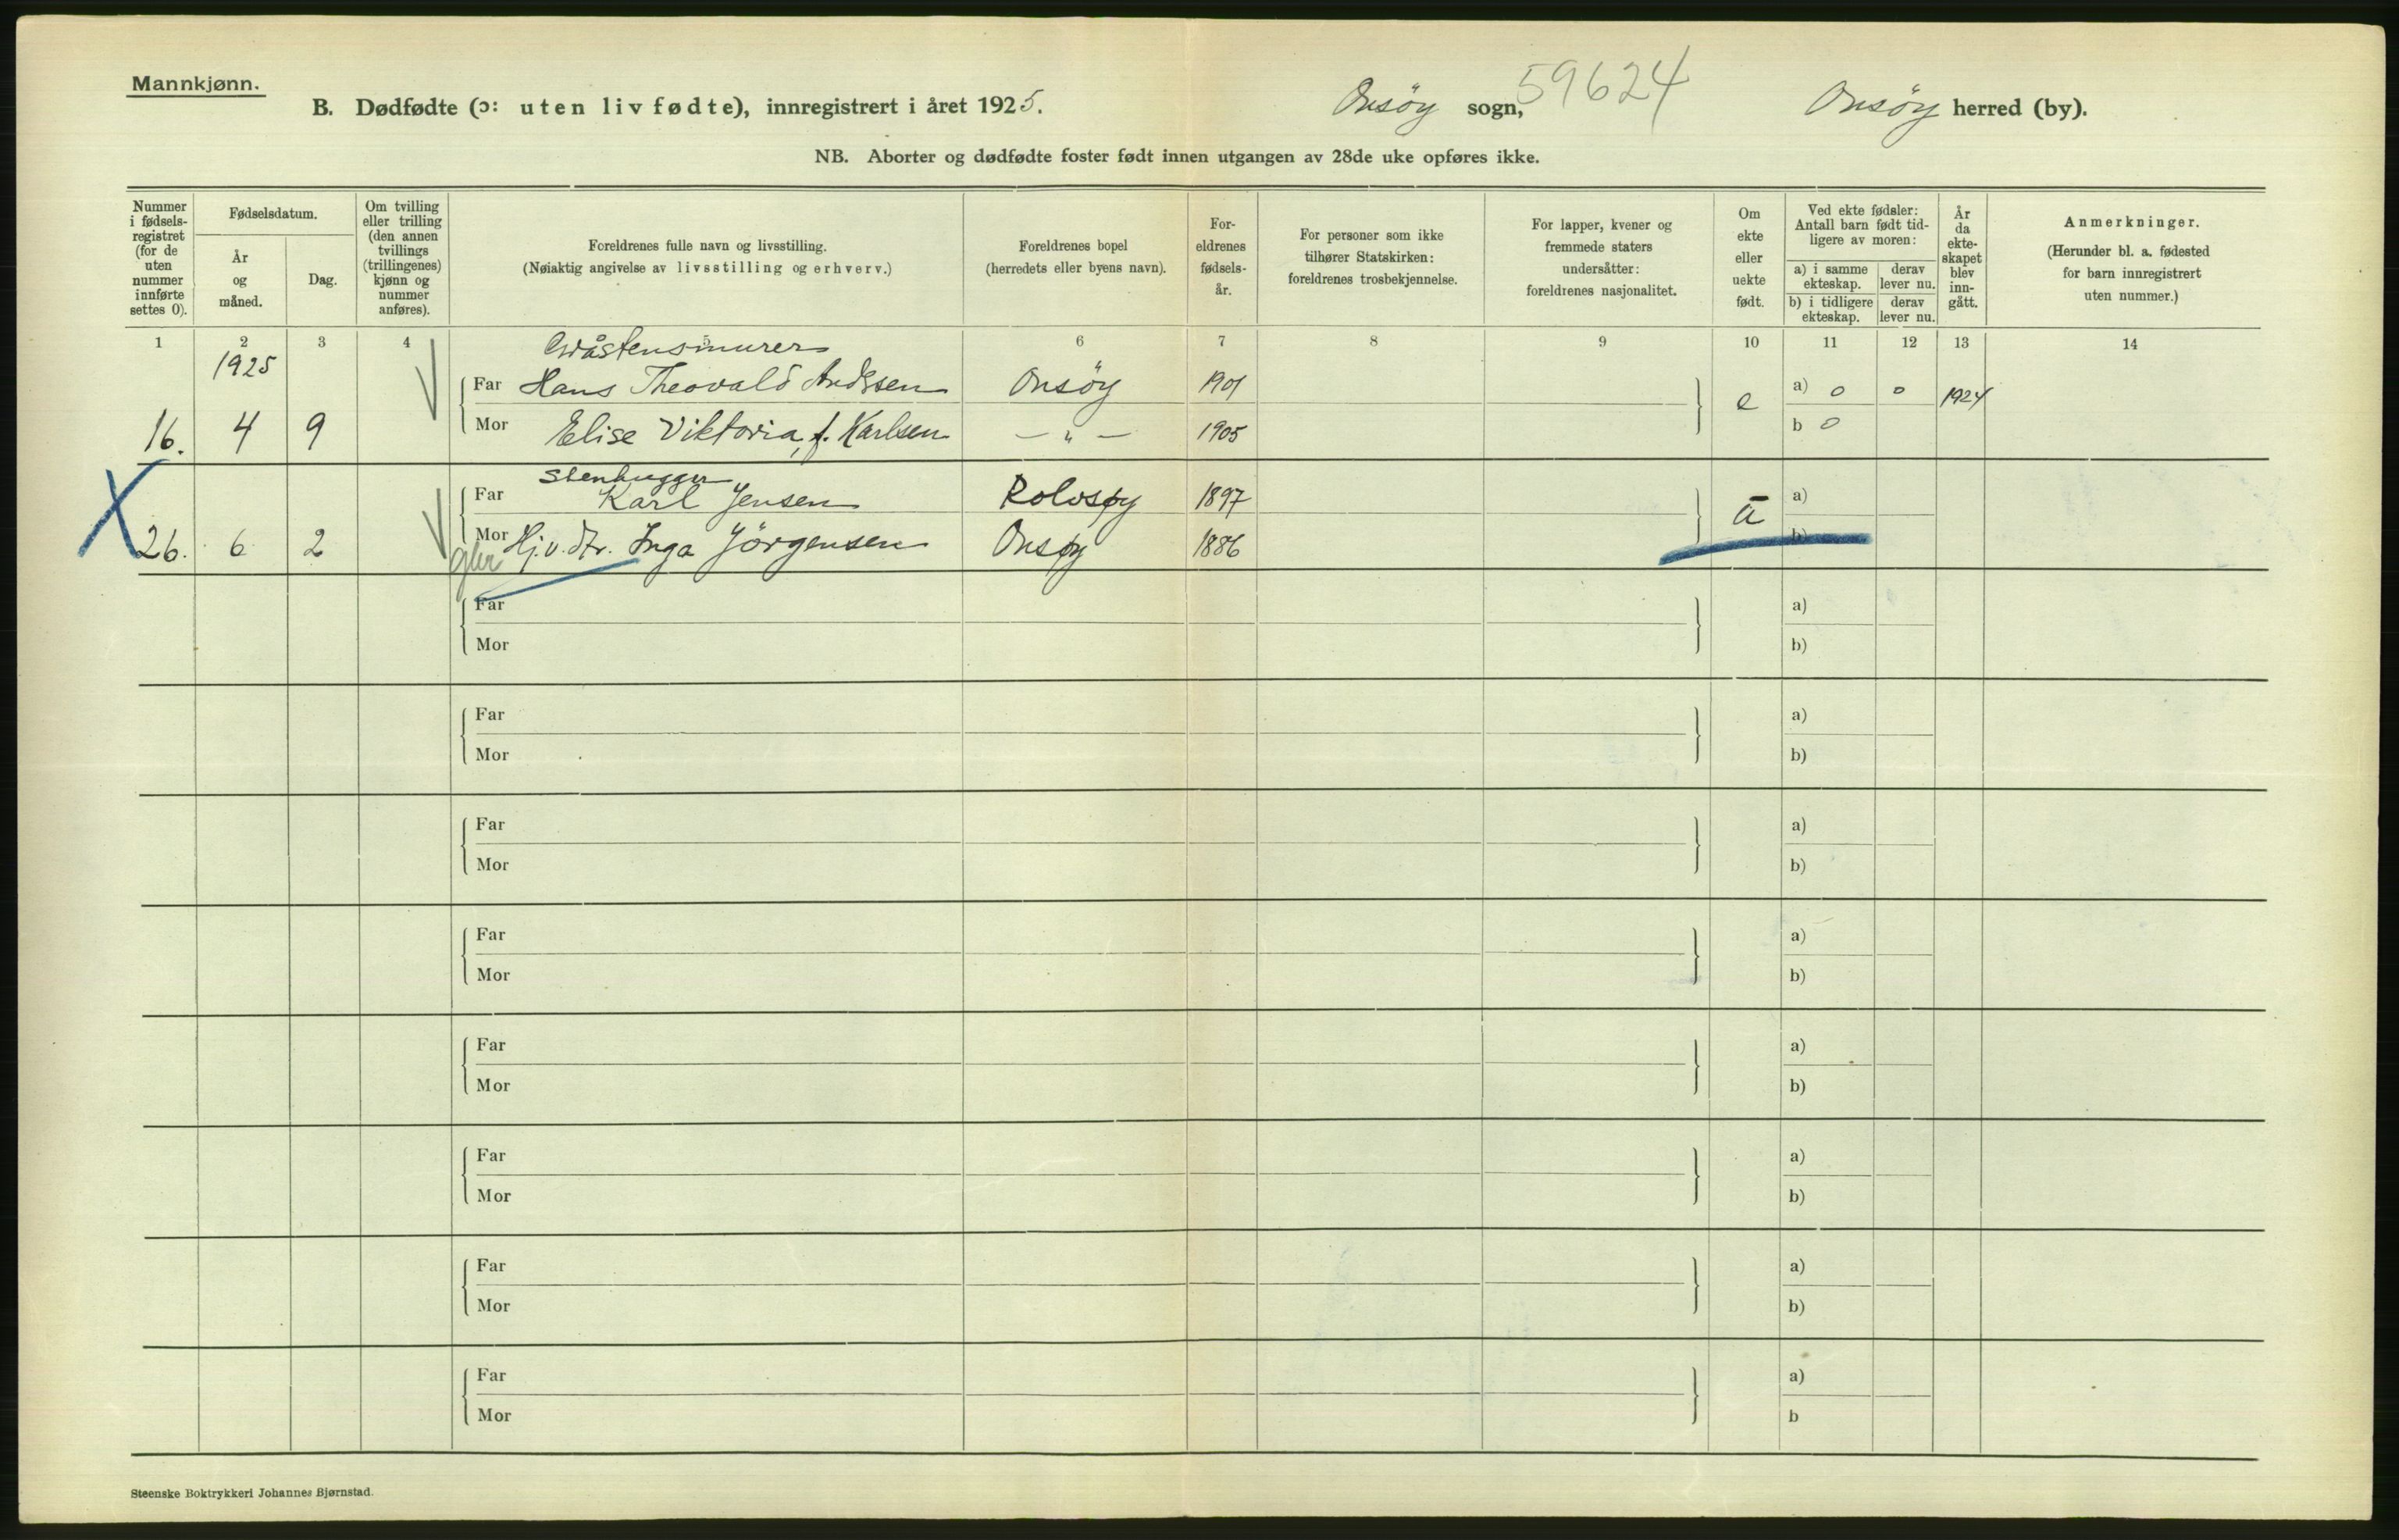 Mannkjønn.
B. Dødfødte (ɔ: uten liv fødte), innregistrert i året 1925. Onsöy sogn, 59624 Onsöy herred (by).
NB. Aborter og dødfødte foster født innen utgangen av 28de uke opføres ikke.
Nummer i fødsels-registret (for de uten nummer innførte settes 0).
Fødselsdatum.
År og måned.
Dag.
Om tvilling eller trilling (den annen tvillings (trillingenes) kjønn og nummer anføres).
Foreldrenes fulle navn og livsstilling.
(Nøiaktig angivelse av livsstilling og erhverv.)
Foreldrenes bopel
(herredets eller byens navn).
For-eldrenes fødsels-år.
For personer som ikke tilhører Statskirken: foreldrenes trosbekjennelse.
For lapper, kvener og fremmede staters undersåtter: foreldrenes nasjonalitet.
Om ekte eller uekte født.
Ved ekte fødsler: Antall barn født tid-ligere av moren:
a) i samme ekteskap.
derav lever nu.
b) i tidligere ekteskap.
derav lever nu.
År da ekte-skapet blev inn-gått.
Anmerkninger.
(Herunder bl. a. fødested for barn innregistrert uten nummer.)
1 2 3 4 6 7 8 9 10 11 12 13 14
1925
Gråstensmurer
Far Hans Theovald Andssen Onsöy 1901 e a) 0 0 1924
16. 4 9 Mor Elise Viktoria, f. Karlsen — " — 1905 b 0
Stenhugger
Far Karl Jensen Rolvsøy 1897 ū a)
26. 6 2 Mor Hj.v. dtr. Inga Jörgensen Onsøy 1886 b)
Far a)
Mor b)
Far a)
Mor b)
Far a)
Mor b)
Far a)
Mor b)
Far a)
Mor b)
Far a)
Mor b)
Far a)
Mor b)
Far a)
Mor b
Steenske Boktrykkeri Johannes Bjørnstad.